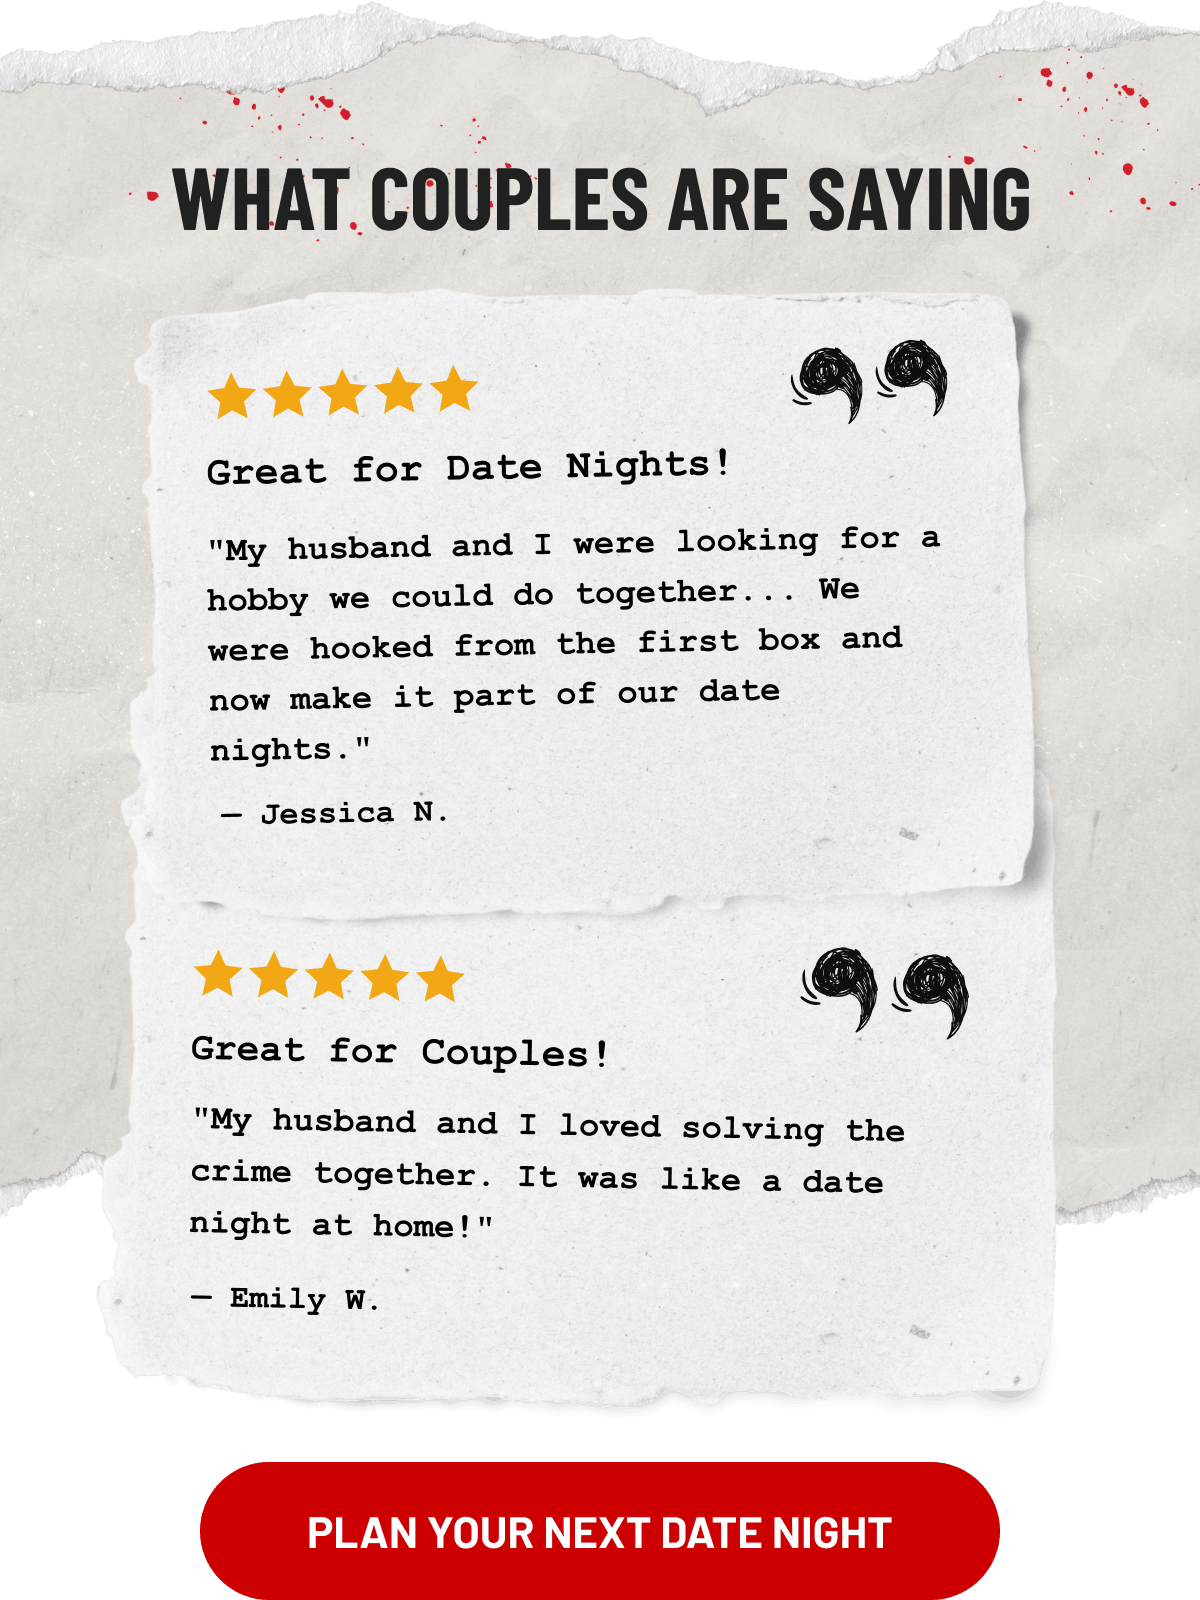 WHAT COUPLES ARE SAYING
Great for Date Nights!
"My husband and I were looking for a
hobby we could do together... We
were hooked from the first box and
now make it part of our date
nights."
— Jessica N.
Great for Couples!
"My husband and I loved solving the
crime together. It was like a date
night at home!"
— Emily W.
PLAN YOUR NEXT DATE NIGHT